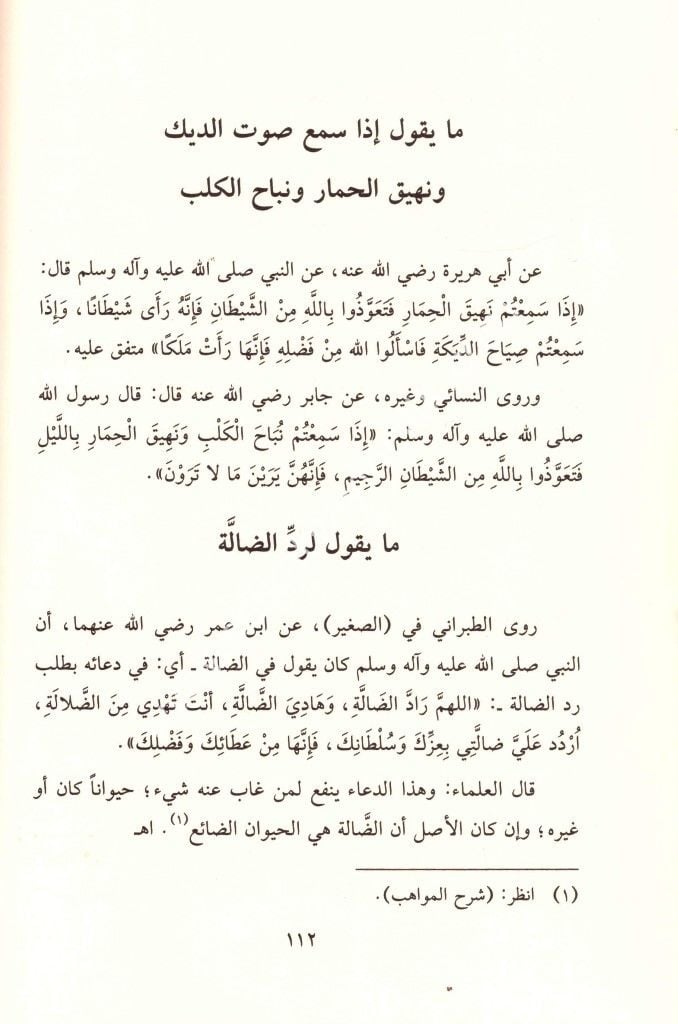 ما يقول إذا سمع صوت الديك
ونهيق الحمار ونباح الكلب
عن أبي هريرة رضي الله عنه، عن النبي صلى الله عليه وآله وسلم قال:
«إِذَا سَمِعْتُمْ نَهِيقَ الْحِمَارِ فَتَعَوَّذُوا بِاللَّهِ مِنْ الشَّيْطَانِ فَإِنَّهُ رَأَى شَيْطَانًا، وَإِذَا
سَمِعْتُمْ صِيَاحَ الدِّيَكَةِ فَاسْأَلُوا الله مِنْ فَضْلِهِ فَإِنَّهَا رَأَتْ مَلَكًا» متفق عليه.
وروى النسائي وغيره، عن جابر رضي الله عنه قال: قال رسول الله
صلى الله عليه وآله وسلم: «إِذَا سَمِعْتُمْ نُبَاحَ الْكَلْبِ وَنَهِيقَ الْحِمَارِ بِاللَّيْلِ
فَتَعَوَّذُوا بِاللَّهِ مِن الشَّيْطَانِ الرَّجِيمِ، فَإِنَّهُنَّ يَرَيْنَ مَا لا تَرَوْنَ».
ما يقول لردِّ الضالَّة
روى الطبراني في (الصغير)، عن ابن عمر رضي الله عنهما، أن
النبي صلى الله عليه وآله وسلم كان يقول في الضالة ـ أي: في دعائه بطلب
رد الضالة ـ: «اللهمَّ رَادَّ الضَالَّةِ، وَهَادِيَ الضَّالَّةِ، أنْتَ تَهْدِي مِنَ الضَّلالَةِ،
اُرْدُد عَلَيَّ ضالَّتِي بِعِزِّكَ وَسُلْطَانِكَ، فَإنَّهَا مِنْ عَطَائِكَ وَفَضْلِكَ».
قال العلماء: وهذا الدعاء ينفع لمن غاب عنه شيء؛ حيواناً كان أو
غيره؛ وإن كان الأصل أن الضَّالة هي الحيوان الضائع(١). اهـ
(١) انظر: (شرح المواهب).
١١٢